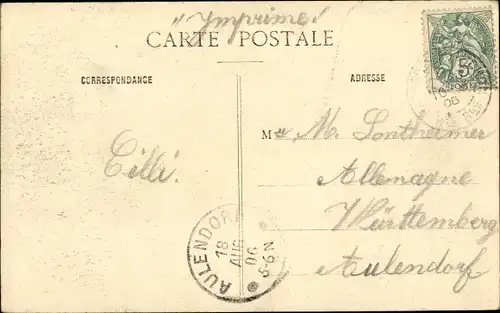 "Imprimé"
CARTE POSTALE
CORRESPONDANCE
ADRESSE
5
06
Cilli.
M lle M. Lontheimer
Allemagne
Württemberg
Aulendorf
AULENDORF
18
AUG
06
5-6 N